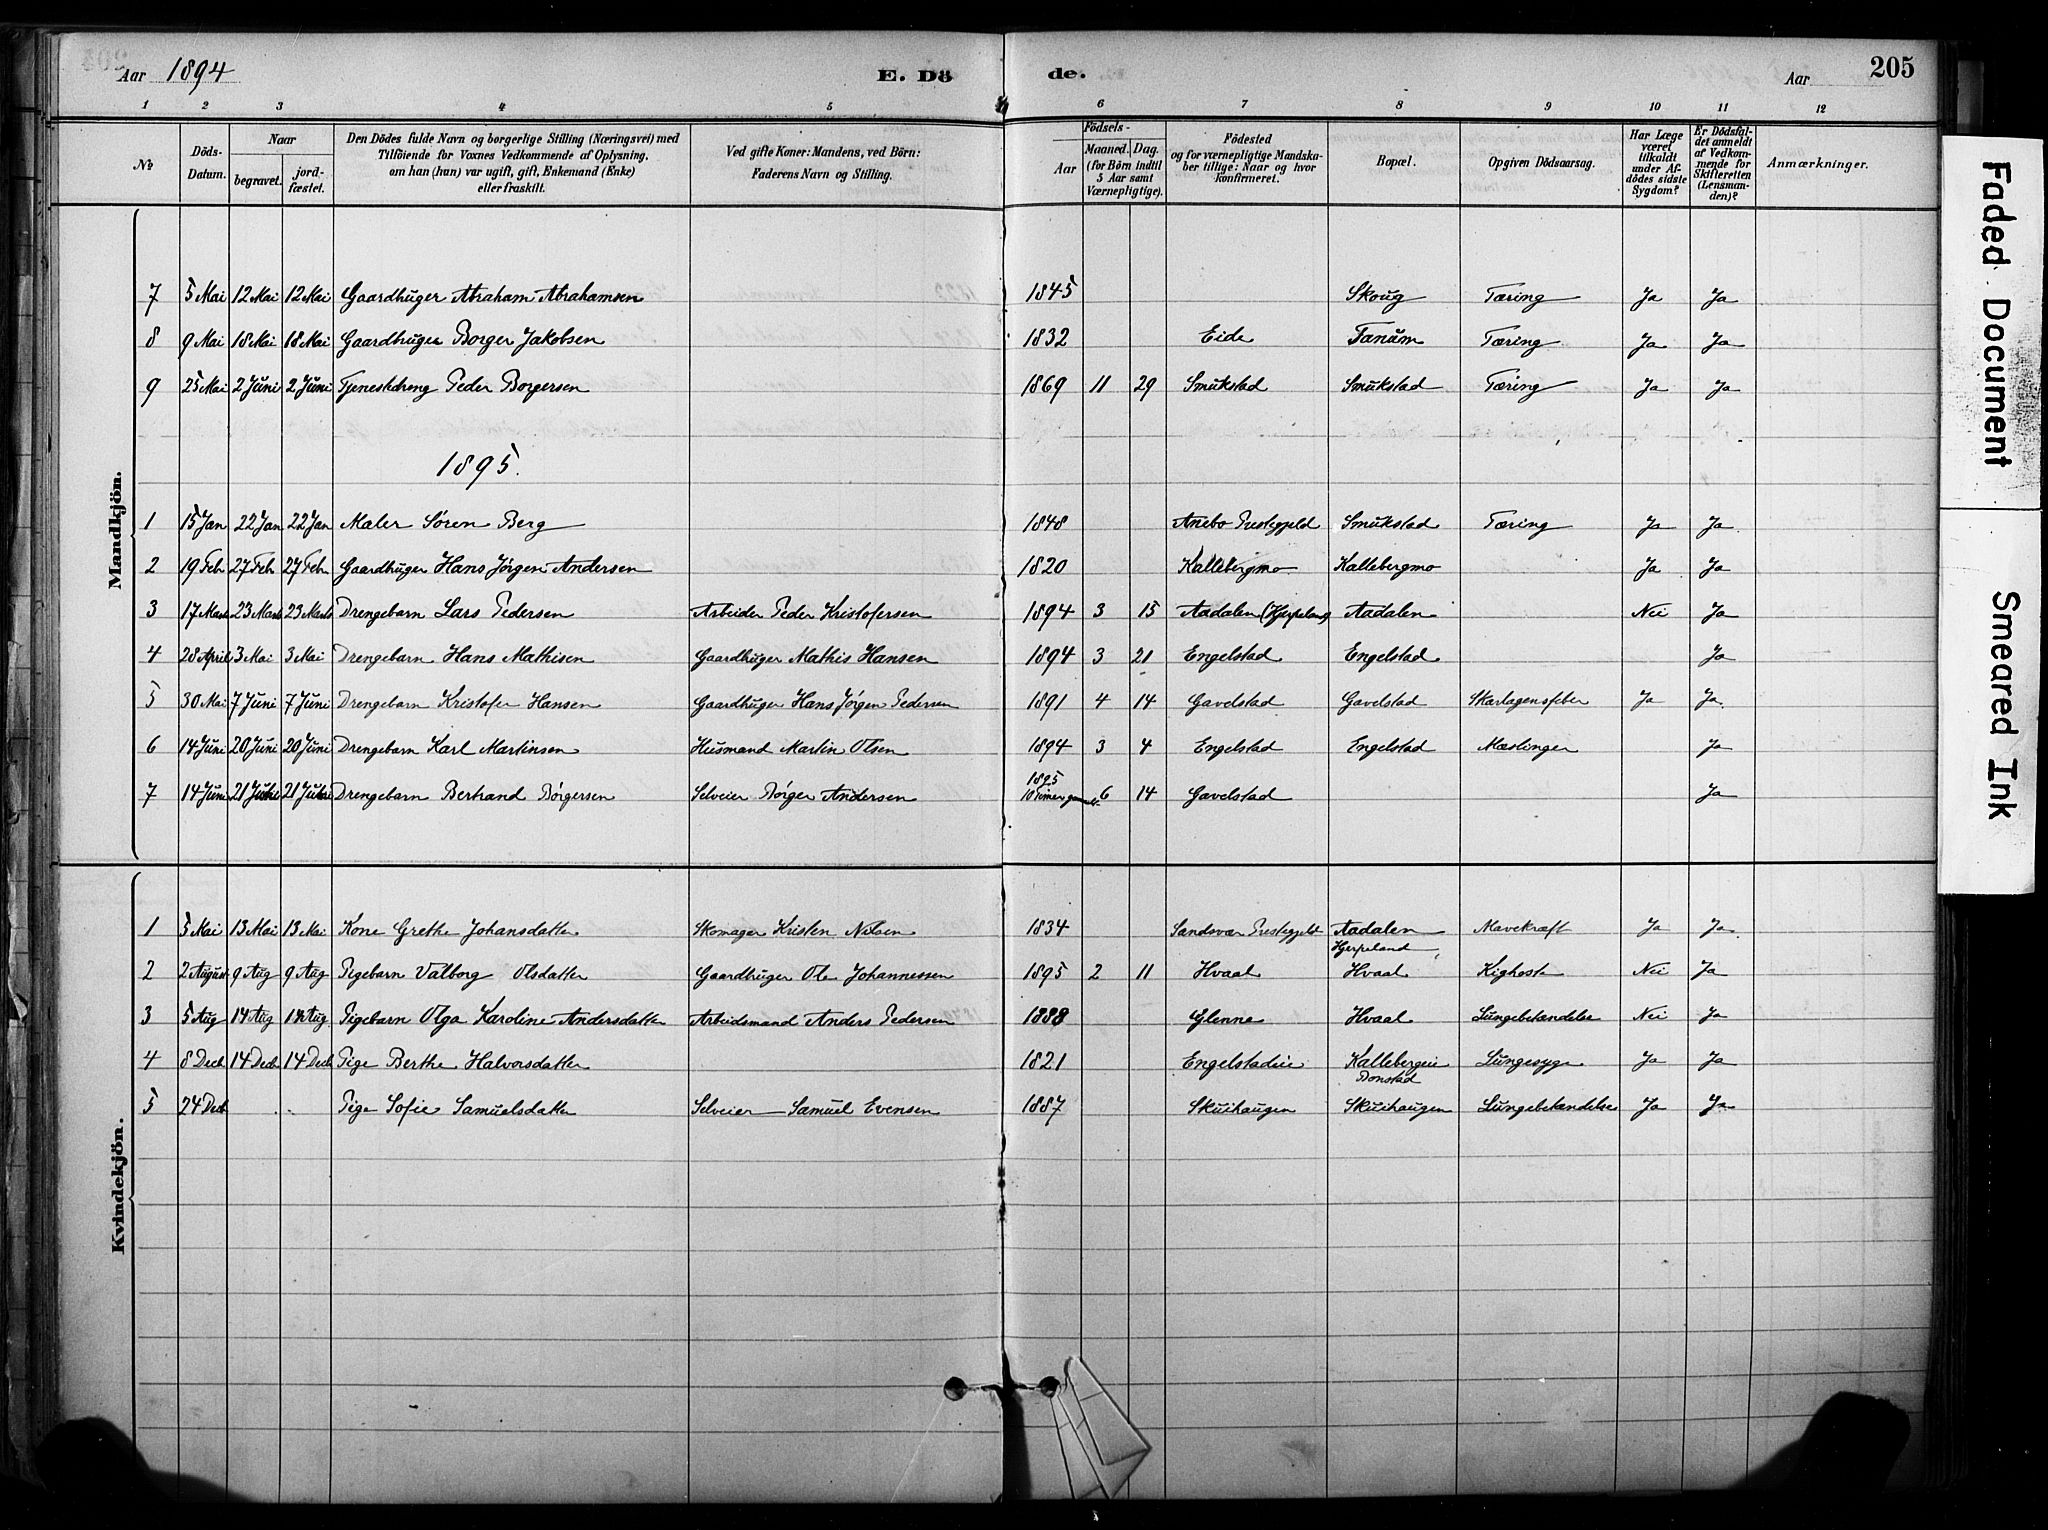 Aar 1894 E. Dö de. Aar 205
1 2 3 4 5 6 7 8 9 10 11 12
No Döds-Datum. Naar begravet. jordfæstet. Den Dödes fulde Navn og borgerlige Stilling (Næringsvei) med Tilföiende for Voxnes Vedkommende af Oplysning, om han (hun) var ugift, gift, Enkemand (Enke) eller fraskilt. Ved gifte Koner: Mandens, ved Börn: Faderens Navn og Stilling. Födsels- Aar Maaned. Dag. (for Börn indtil 5 Aar samt Værnepligtige). Födested og for værnepligtige Mandskaber tillige: Naar og hvor konfirmeret. Bopæl. Opgiven Dödsaarsag. Har Læge været tilkaldt under Afdödes sidste Sygdom? Er Dödsfaldet anmeldt af Vedkommende for Skifteretten (Lensmanden)? Anmærkninger.
Mandkjön.
7 5 Mai 12 Mai 12 Mai Gaardbruger Abraham Abrahamsen 1845 Skoug Tæring Ja Ja
8 9 Mai 18 Mai 18 Mai Gaardbruger Borger Jakobsen 1832 Eide Fanum Tæring Ja Ja
9 25 Mai 2 Juni 2 Juni Tjenestdreng Peder Borgersen 1869 11 29 Smukstad Smukstad Tæring Ja Ja
1895.
1 15 Jan 22 Jan 22 Jan Maler Søren Berg 1848 Anebo Prestegjeld Smukstad Tæring Ja Ja
2 19 Feb 27 Feb 27 Feb Gaardbruger Hans Jørgen Andersen 1820 Kallebergmo Kallebergmo Ja Ja
3 17 Marts 23 Marts 23 Marts Drengebarn Lars Pedersen Arbeider Peder Kristofersen 1894 3 15 Aadalen (Hjerpeland) Aadalen Nei Ja
4 28 April 3 Mai 3 Mai Drengebarn Hans Mathisen Gaardbruger Mathis Hansen 1894 3 21 Engelstad Engelstad Ja
5 30 Mai 7 Juni 7 Juni Drengebarn Kristofer Hansen Gaardbruger Hans Jørgen Pedersen 1891 4 14 Gavelstad Gavelstad Skarlagensfeber Ja Ja
6 14 Juni 20 Juni 20 Juni Drengebarn Karl Martinsen Husmand Martin Olsen 1894 3 4 Engelstad Engelstad Mæslinger Ja
7 14 Juni 21 Juni 21 Juni Drengebarn Bertrand Børgersen Selveier Børger Andersen 1895 10 Timer gammelt 6 14 Gavelstad Ja
Kvindekjön.
1 5 Mai 13 Mai 13 Mai Kone Grethe Johansdatter Skomager Kristen Nilsen 1834 Sandsvær Prestegjeld Aadalen Hjerpeland Mavekræft Ja Ja
2 2 August 9 Aug 9 Aug Pigebarn Valborg Olsdatter Gaardbruger Ole Johannessen 1895 2 11 Hvaal Hvaal Kighoste Nei Ja
3 5 Aug 14 Aug 14 Aug Pigebarn Olga Karoline Andersdatter Arbeidsmand Anders Pedersen 1888 Glenne Hvaal Lungebetændelse Nei Ja
4 8 Decb 14 Decb 14 Decb Pige Berthe Halvorsdatter 1821 Engelstadeie Kallebergeie Bonstad Lungesyge Ja Ja
5 24 Decb Pige Sofie Samuelsdatter Selveier Samuel Evensen 1887 Skuihaugen Skuihaugen Lungebetændelse Ja Ja
Faded Document
Smeared Ink